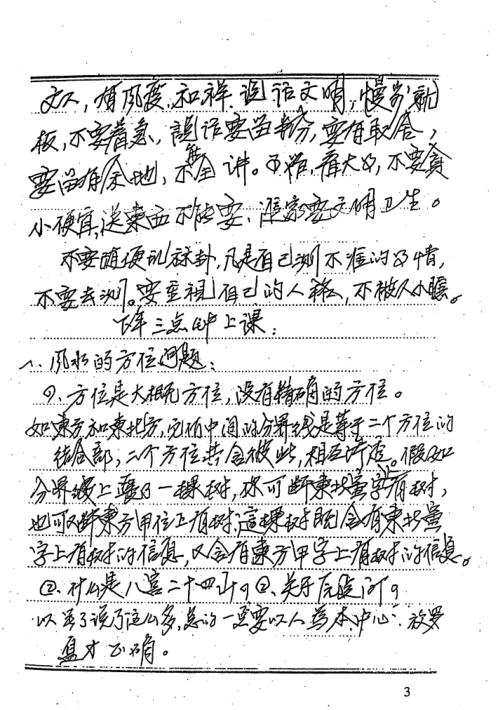 文人,有风度,和祥.说话文明,慢步就
板,不要着急,说话要留半分,要有取舍,
要留有余地,不全讲。要看大的,不要贪
小便宜,送東西不能要,居家要文明卫生。
不要随便乱补卦,凡是自己测不准的事情,
不要去测。要重視自己的人格,不被人小瞧。
下午三点钟上课:
一、风水的方位问题:
①、方位是大概方位,没有精确的方位。
如東方和東北方,它们中间的分界线是等于二个方位的
结合部,二个方位共含彼此,相互渗透。假如
分界线上有一棵树,你可断東北寅字有树,
也可以断東方甲位上有树;这棵树既含有東北寅
字上有树的信息,又含有東方甲字上有树的信息。
②、什么是八宫二十四山
以上说了这么多,总的一定要以人为本中心.
才正确。
3